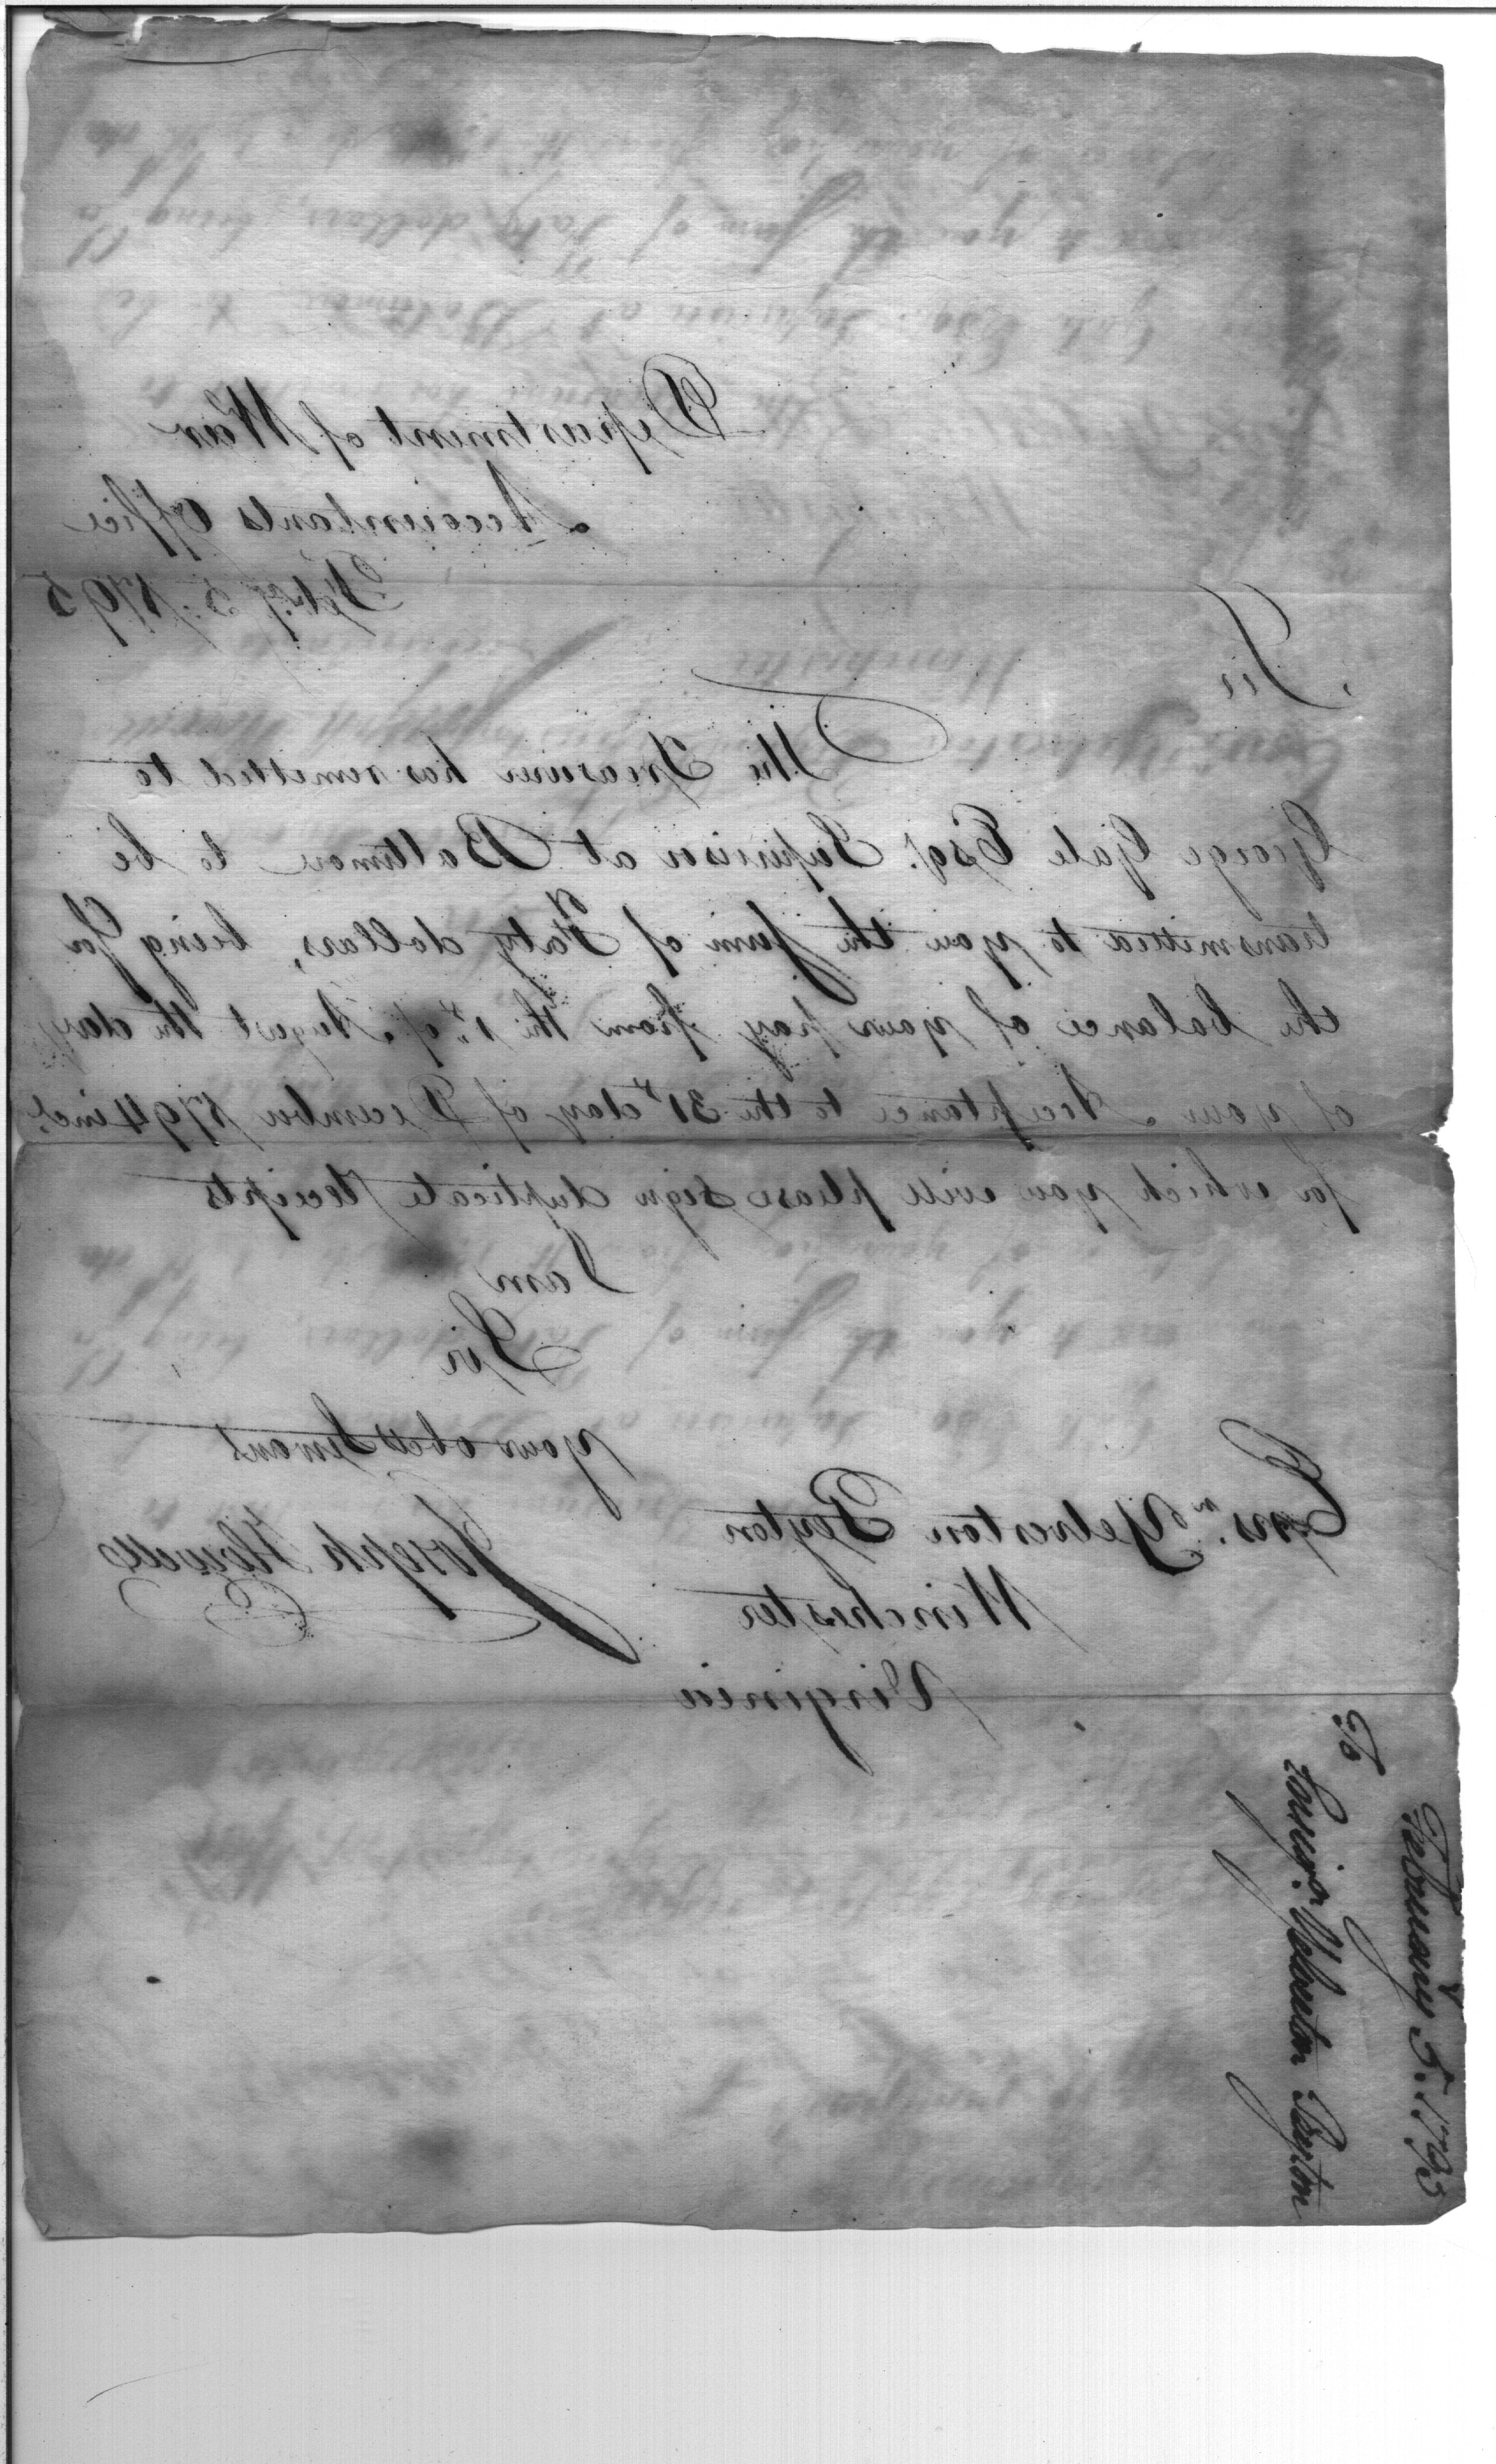 Department of War
Accountants Office
Feby. 5. 1795
Sir
The Treasurer has remitted to
George Gale Esqr. Supervisor at Baltimore to be
transmitted to you the sum of Forty dollars, being for
the balance of your pay from the 1st of August the day
of your Acceptance to the 31st day of December 1794 incl.
for which you will please sign duplicate Receipts
I am
Sir
your obedt Servant
Joseph Howell
Ensn. Yelverton Peyton
Winchester
Virginia
February 5. 1795
To
Ensign Yelverton Peyton